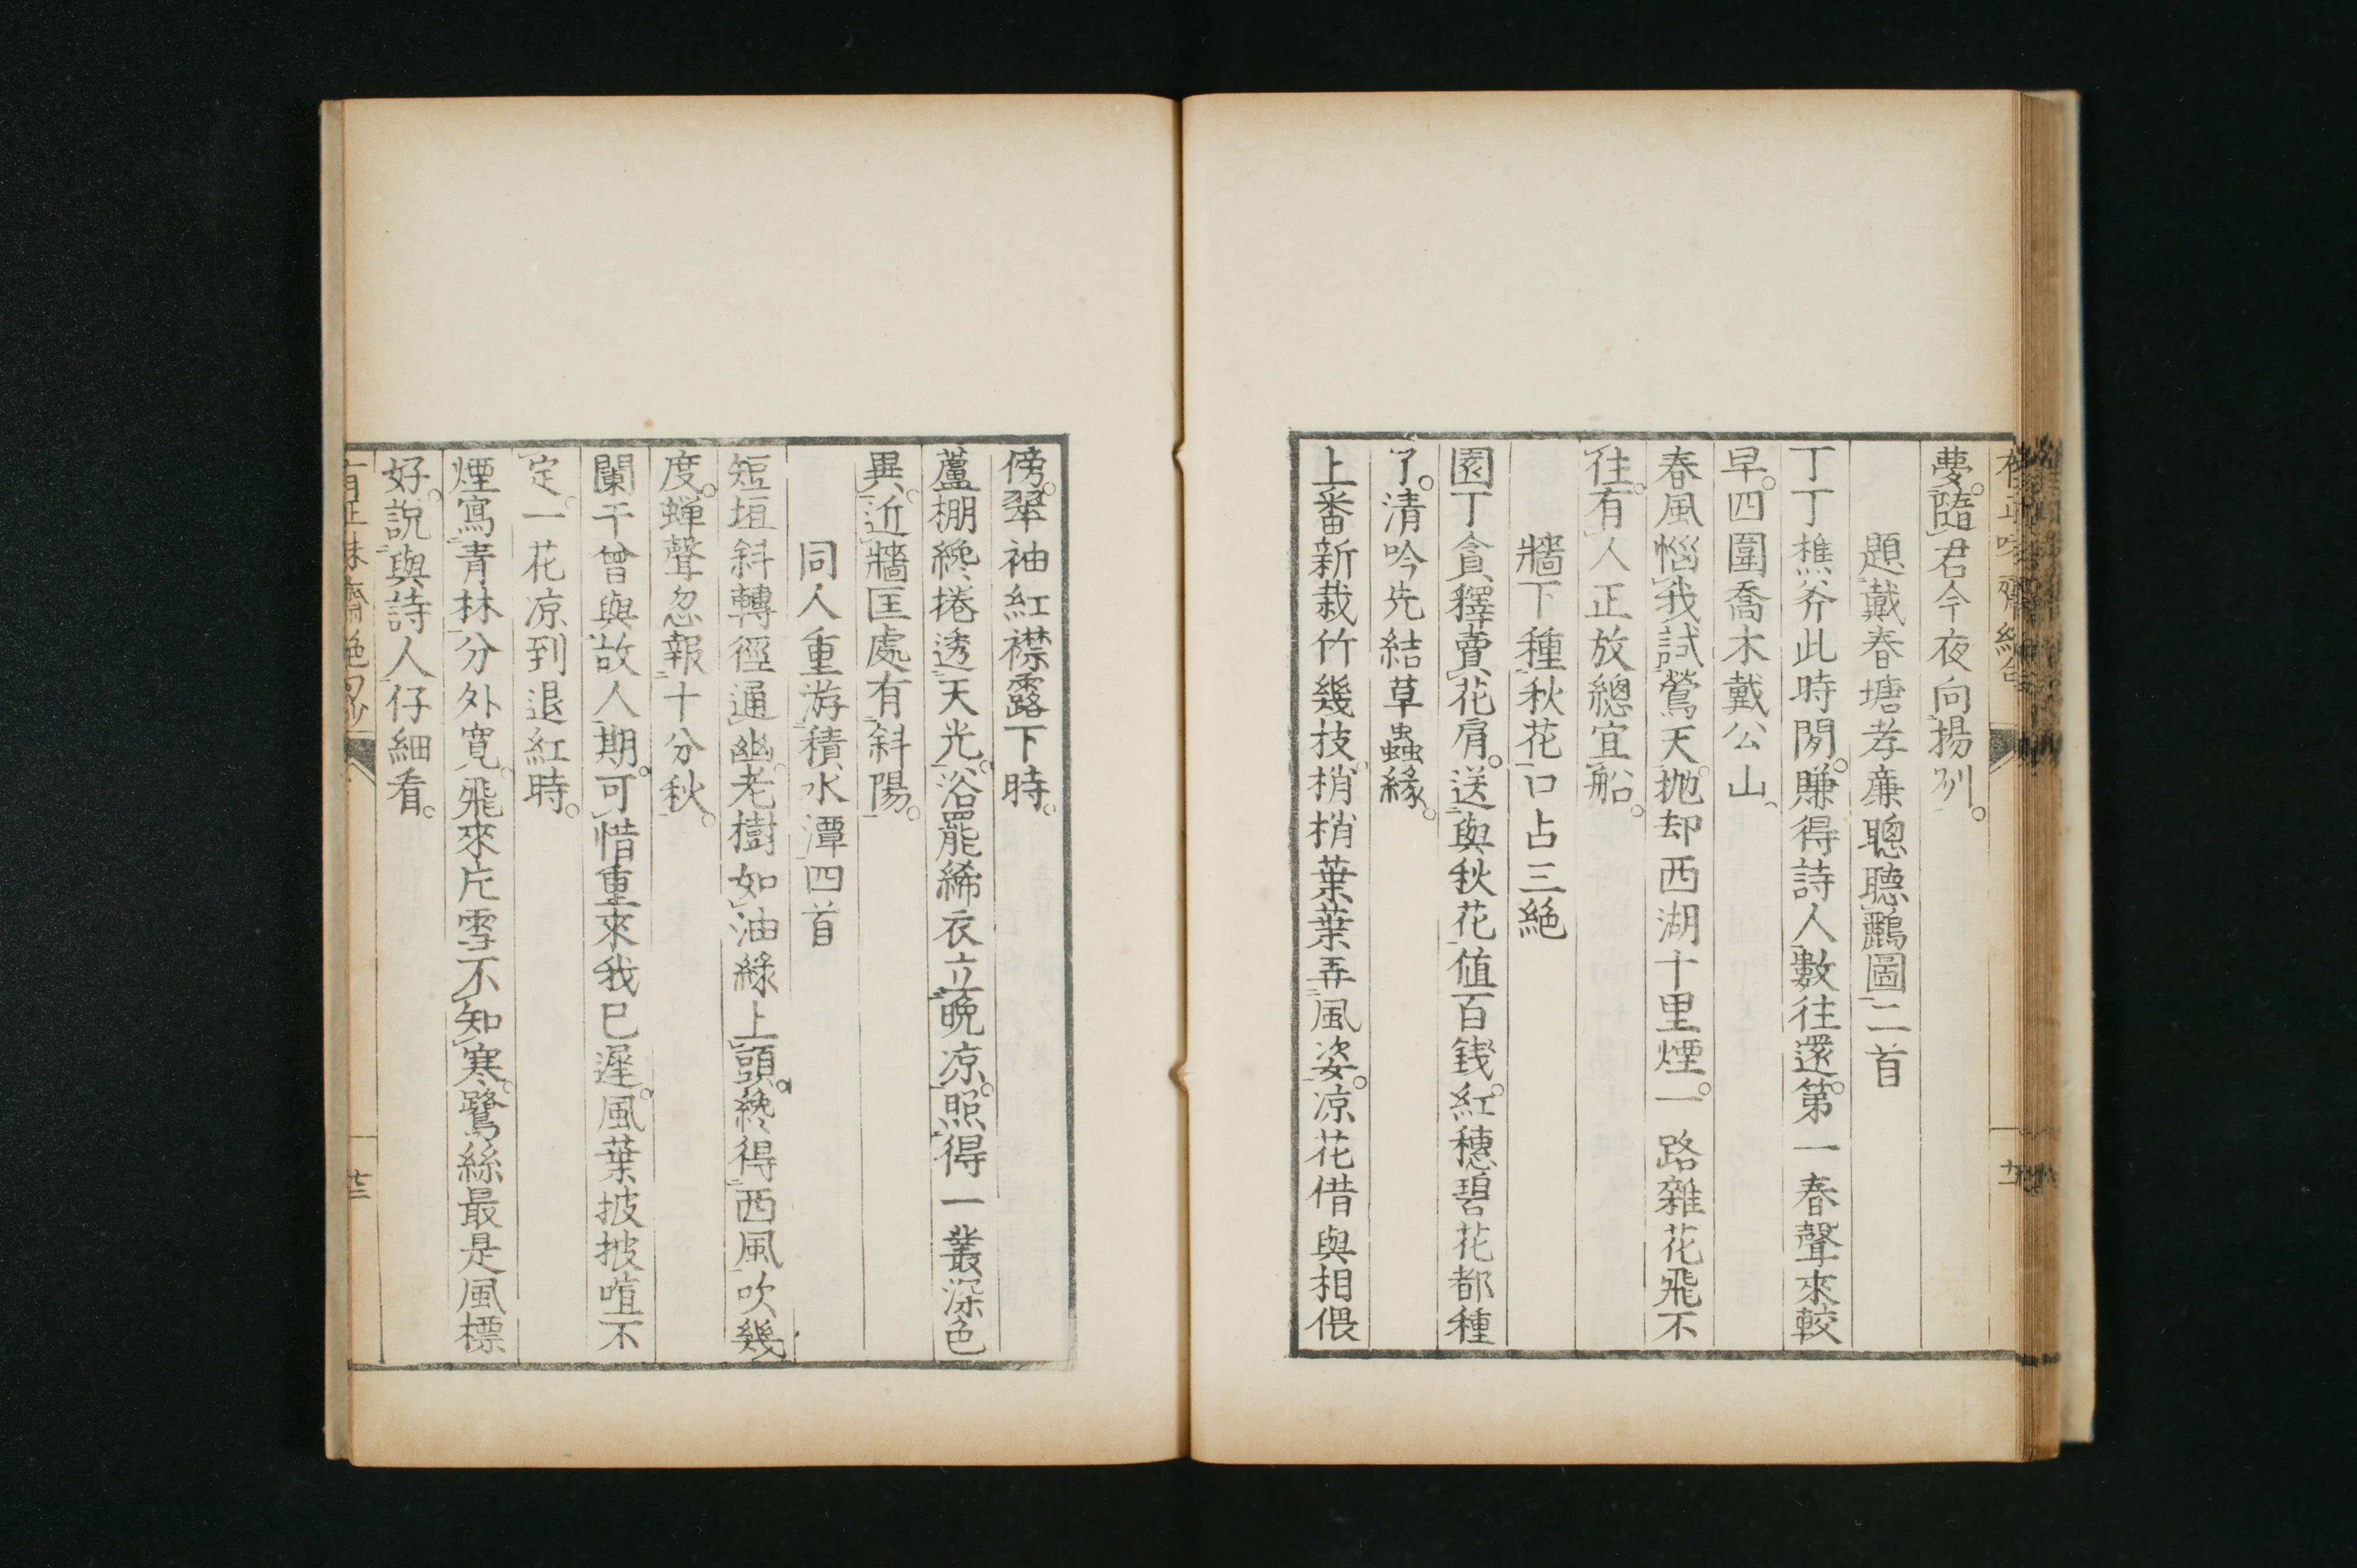 夢。隨君今夜向揚州。
題戴春塘孝廉聰聽鸝圖二首
丁丁樵斧此時閒。賺得詩人數往還。第一春聲來較
早。四圍喬木戴公山。
春風惱我試鶯天。抛却西湖十里煙。一路雜花飛不
往。有人正放總宜船。
牆下種秋花口占三絶
園丁貪釋賣花肩。送與秋花値百錢。紅穗碧花都種
了。清吟先結草蟲緣。
上番新栽竹幾技。梢梢葉葉弄風姿。凉花借與相偎
傍。翠袖紅襟露下時。
蘆棚纔捲透天光。浴罷絺衣立晩凉。照得一叢深色
異。近牆匡處有斜陽。
同人重游積水潭四首
短垣斜轉徑通幽。老樹如油綠上頭。纔得西風吹幾
度。蟬聲忽報十分秋。
闌干曾與故人期。可惜重來我已遲。風葉披披喧不
定。一花凉到退紅時。
煙寫青林分外寬。飛來片雪不知寒。鷺絲最是風標
好。說與詩人仔細看。
有正味齋絶句少
廿三